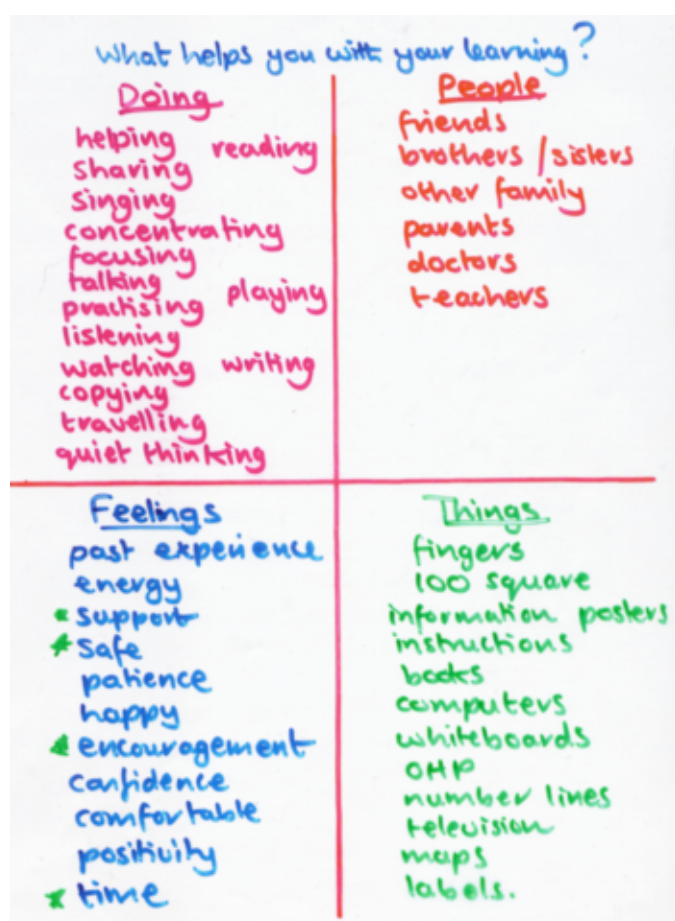 What helps you with your learning?
Doing
helping reading
sharing
singing
concentrating
focusing
talking
practising playing
listening
watching writing
copying
travelling
quiet thinking
People
friends
brothers / sisters
other family
parents
doctors
teachers
Feelings
past experience
energy
support
safe
patience
happy
encouragement
confidence
comfortable
positivity
time
Things
fingers
100 square
information posters
instructions
books
computers
whiteboards
OHP
number lines
television
maps
labels.